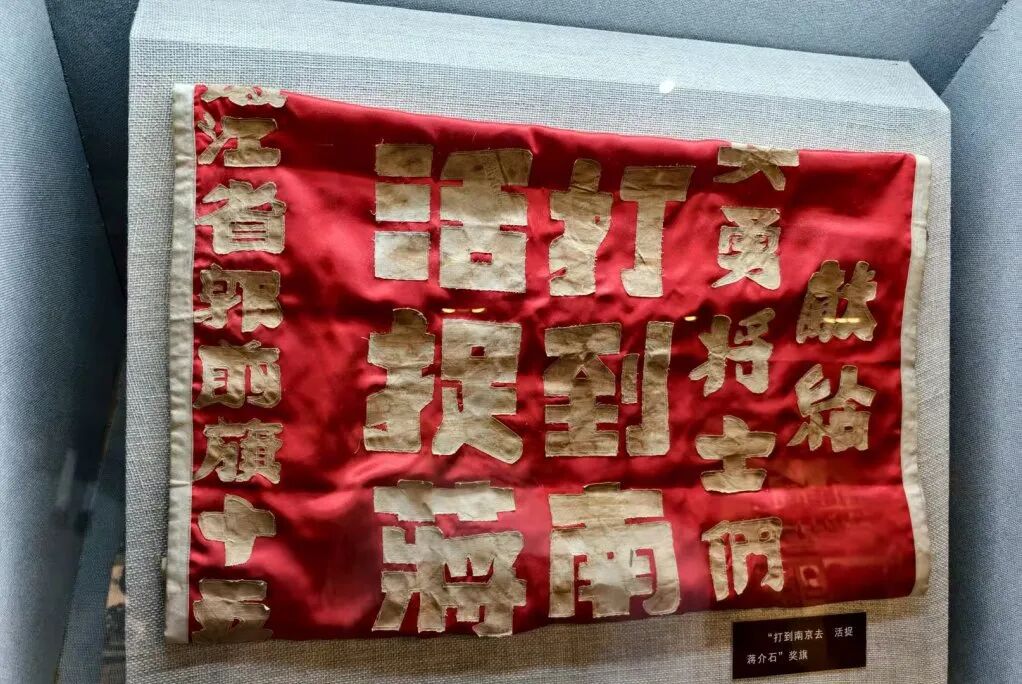 献給
勇将士們
打到南
活捉蔣
江省郭前旗十五
“打到南京去 活捉
蒋介石”奖旗